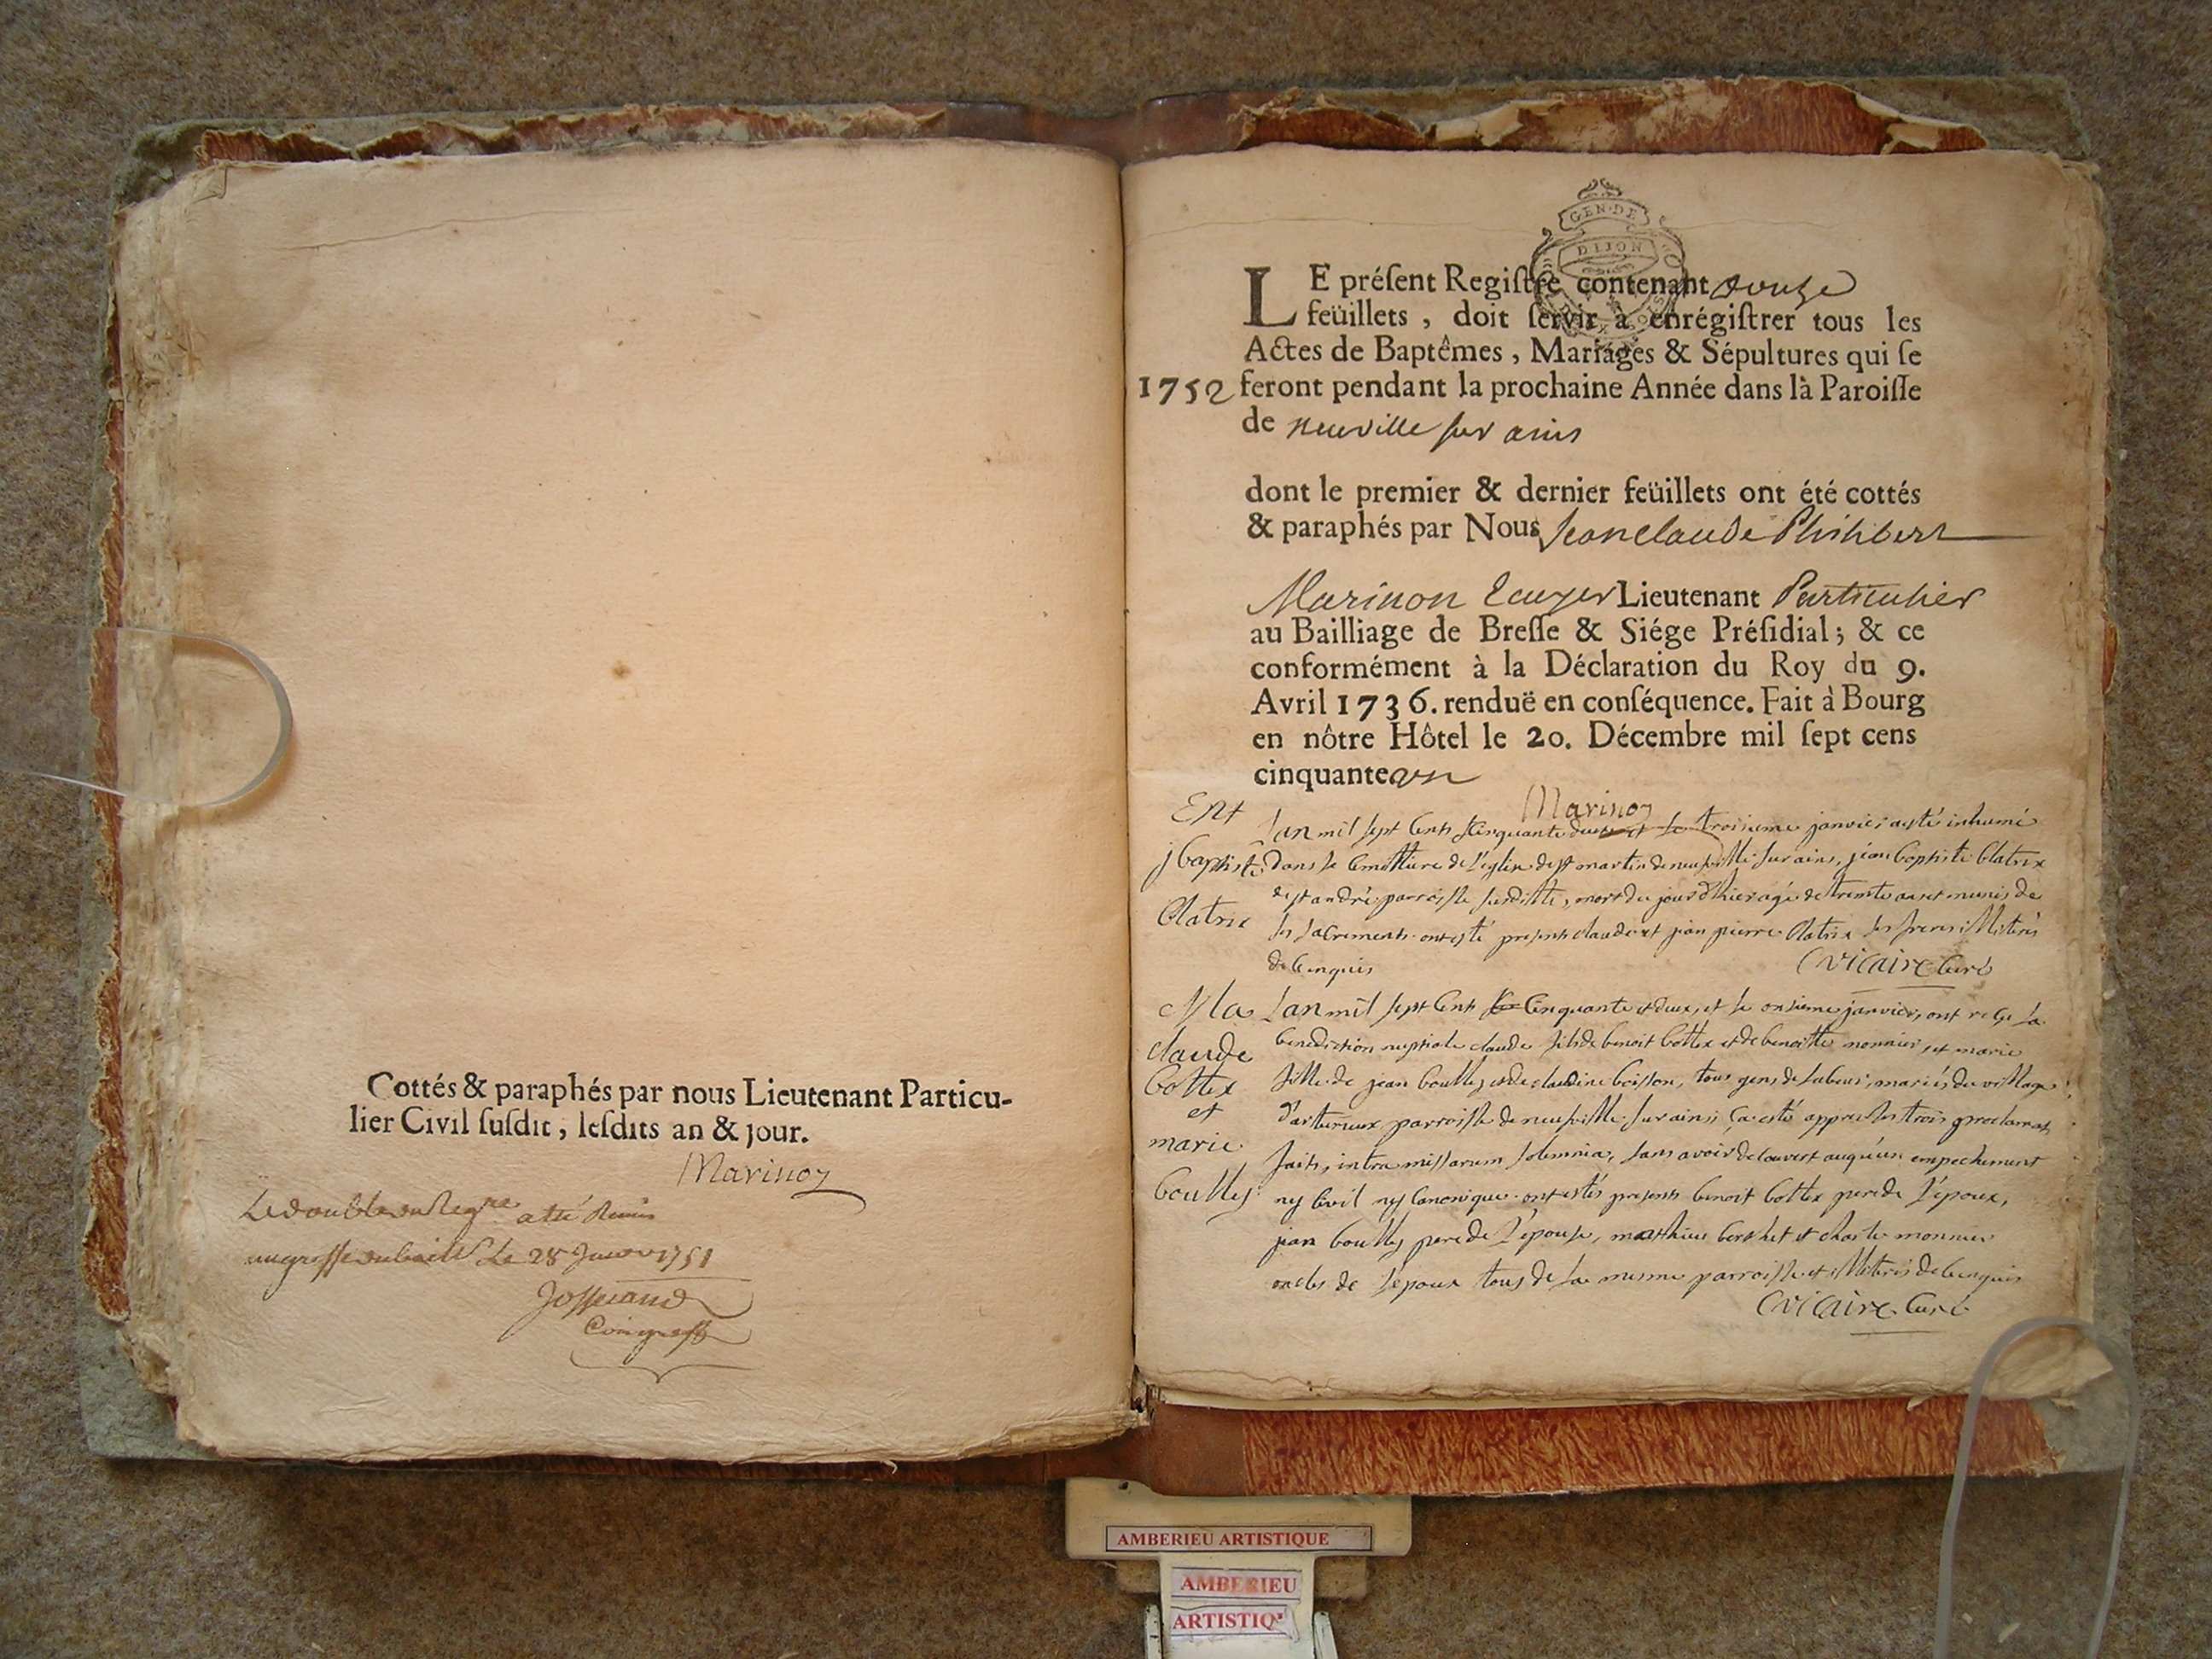 Cottés & paraphés par nous Lieutenant Particu-
lier Civil ſuſdit, leſdits an & jour.
Marinon
Le double du Regre a été Remis
au greffe du bailliage Le 28 1751
GEN·DE
DIJON
LE préſent Regiſtre contenant douze
feüillets, doit ſervir à enrégiſtrer tous les
Actes de Baptêmes, Mariages & Sépultures qui ſe
1752 feront pendant la prochaine Année dans là Paroiſſe
de neuville sur ains
dont le premier & dernier feüillets ont été cottés
& paraphés par Nous Jean Claude Philibert
Marinon Ecuyer Lieutenant Particulier
au Bailliage de Breſſe & Siége Préſidial; & ce
conformément à la Déclaration du Roy du 9.
Avril 1736. renduë en conſéquence. Fait à Bourg
en nôtre Hôtel le 20. Décembre mil ſept cens
cinquante un
Marinon
Ent
j baptiste
Blatrix
Lan mil sept cents cinquante deux et le troisieme janvier a esté inhumé
dans le cimettiere de l'eglise de st martin de neufville sur ains, jean baptiste blatrix
de st andré parroisse susditte, mort du jour d'hier agé de trente ans et munis de
ses sacrements. ont esté presents claude et jean pierre blatrix ses freres illiterés
de ce enquis
C vicaire Curé
Ma
claude
bottex
et
marie
boulley
Lan mil sept cents cinquante et deux, et le onsieme janvier, ont reçu la
benediction nuptiale claude fils de benoit bottex et de benoitte monnier, et marie
fille de jean boulley et de claudine boisson, tous gens de labeur, mariés du village
parroisse de neufville sur ains, ça esté apprés les trois proclamat
faits, intra missarum solemnia, sans avoir decouvert auqu'un empechement
ny civil ny canonique. ont estés presents benoit bottex pere de l'époux,
jean boulley pere de l'épouse, matthieu berthet et charle monnier
oncles de l'epoux tous de la mesme parroisse et illiterés de ce enquis
C vicaire Curé
AMBERIEU ARTISTIQUE
AMBERIEU
ARTISTIQ